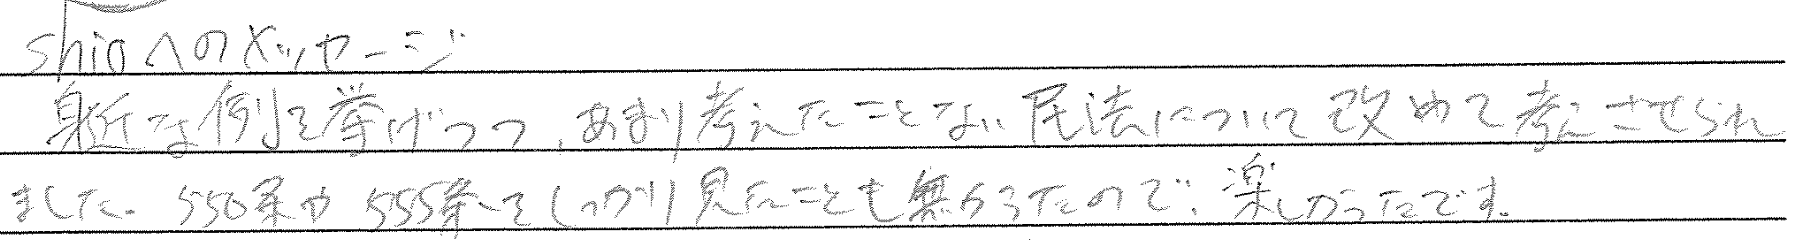 shioへのメッセージ
身近な例を挙げつつ、あまり考えたことない民法について改めて考えさせられ
ました。550条や555条をしっかり見たことも無かったので、楽しかったです。